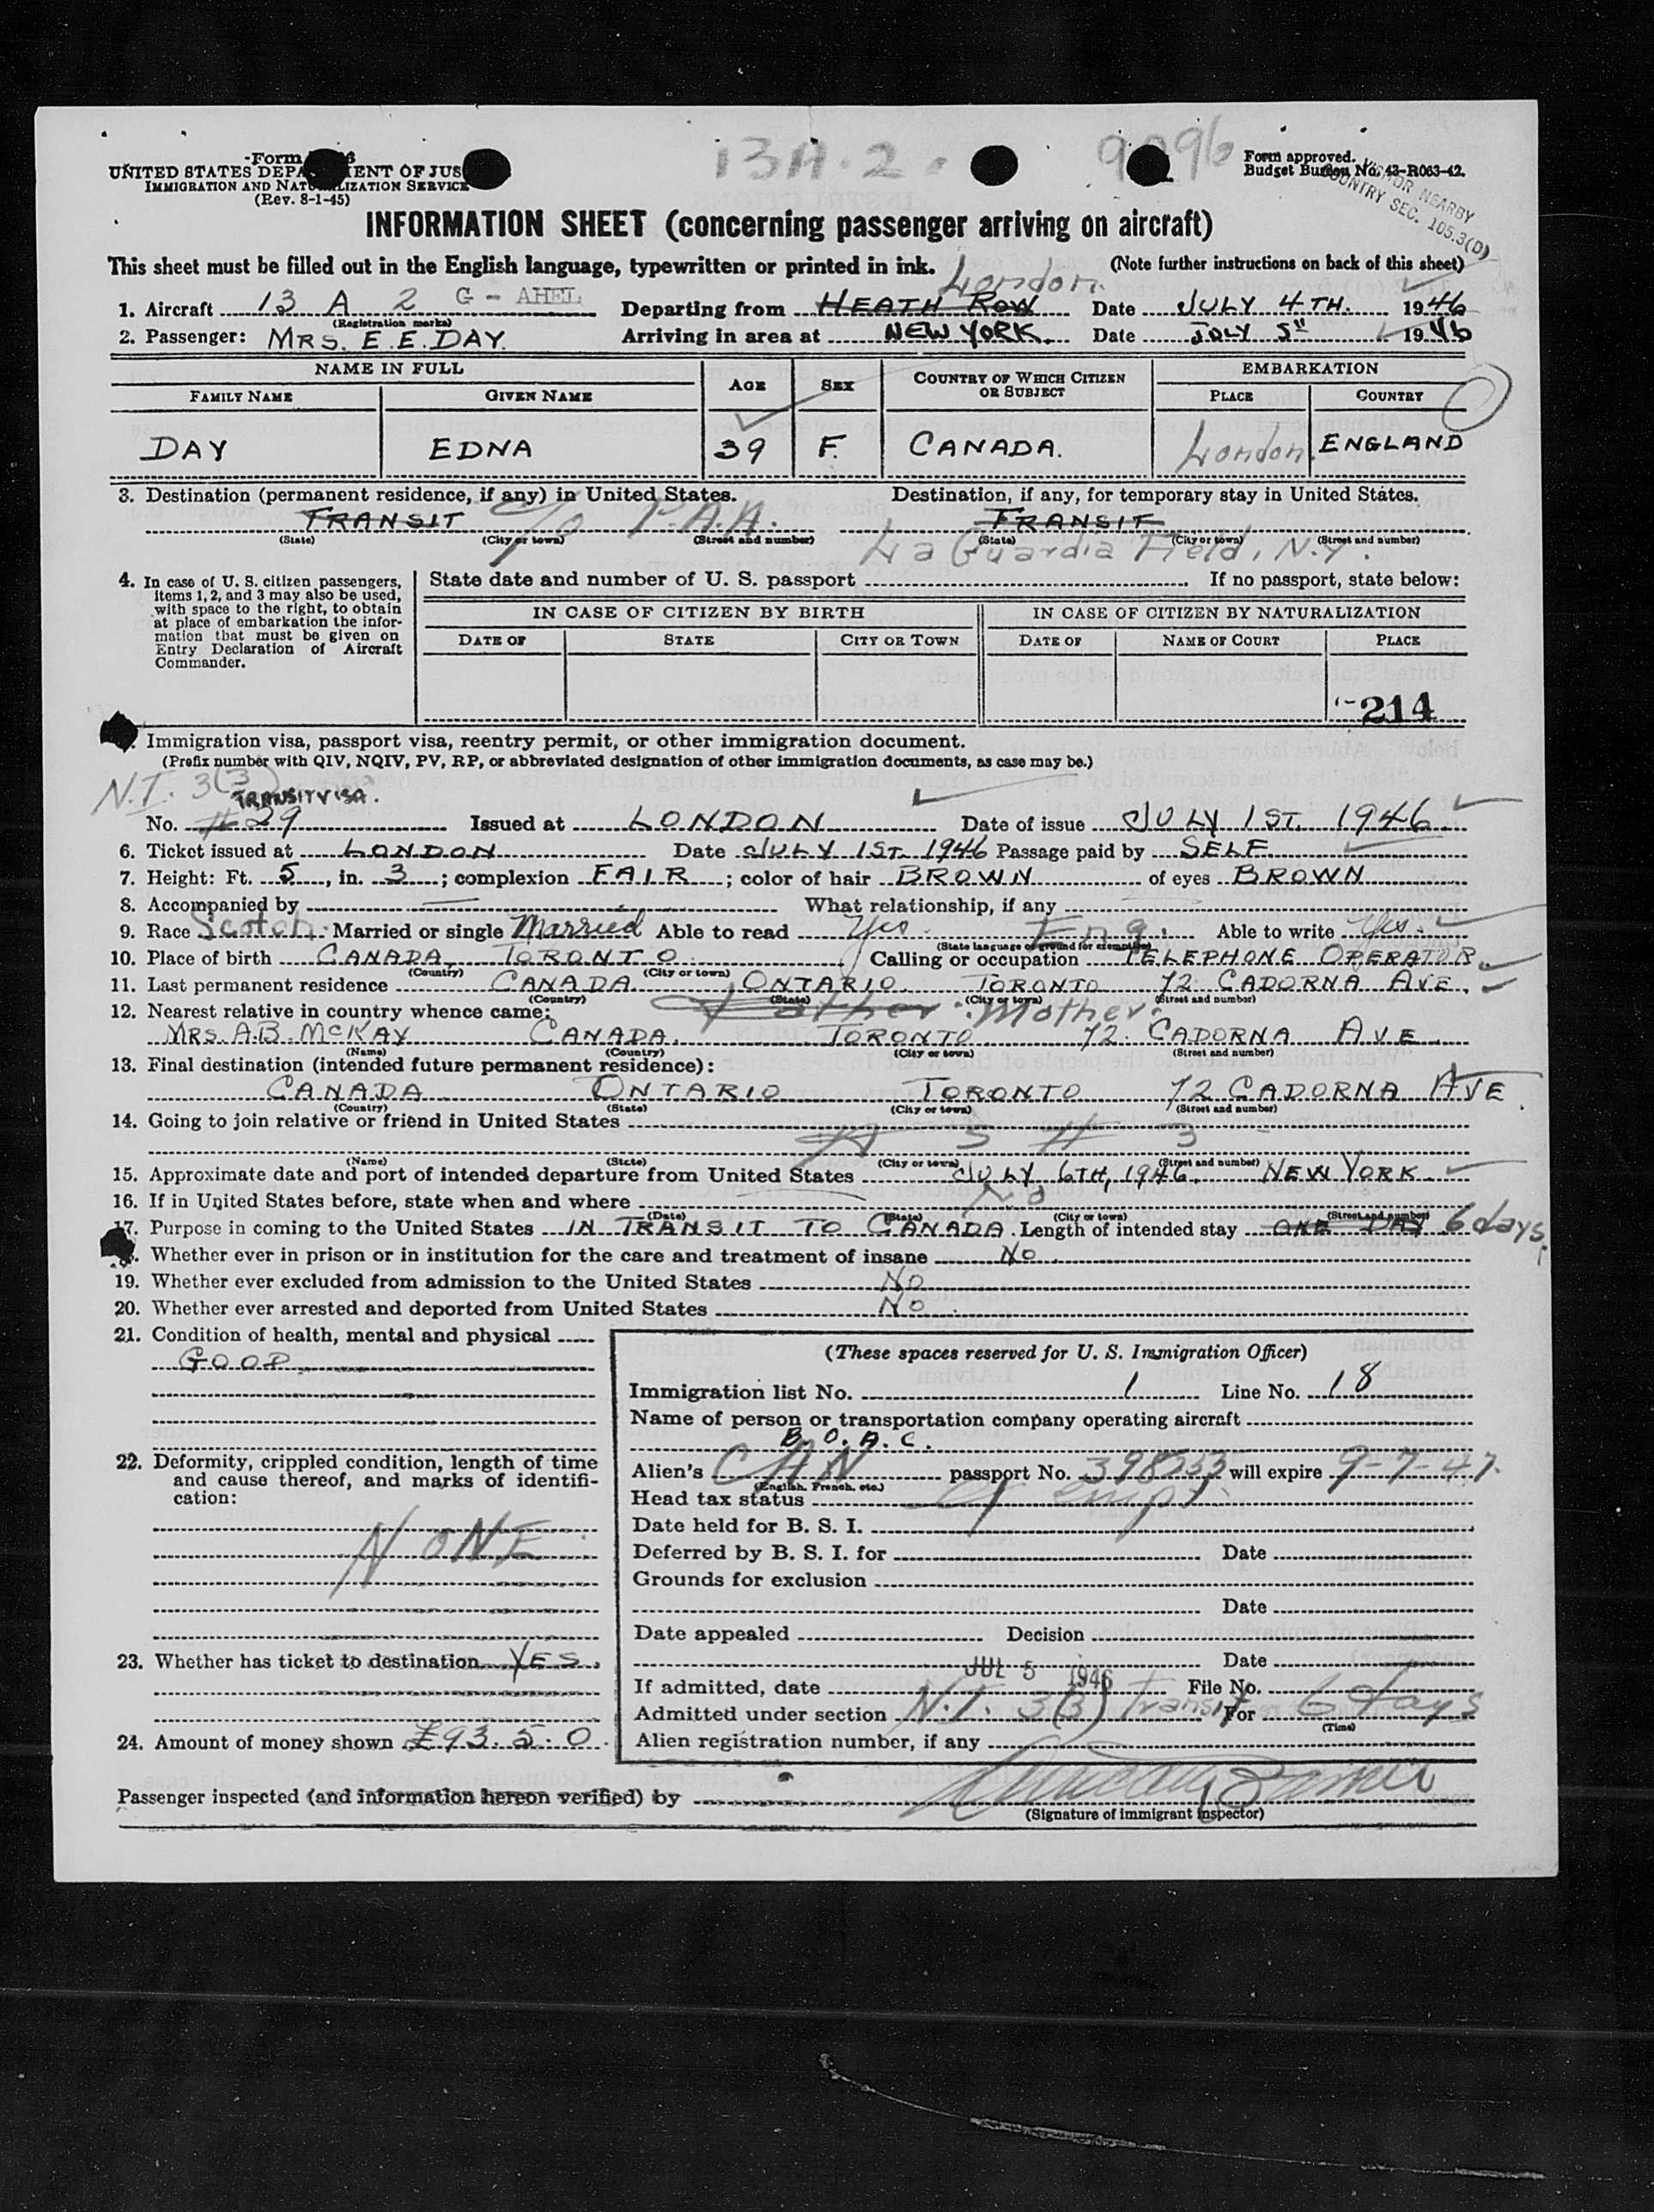 13A.2. 9096
Form
UNITED STATES DEPARTMENT OF JUS
IMMIGRATION AND NATURALIZATION SERVICE
(Rev. 8-1-45)
Form approved.
Budget Bureau No. 43-R063-42.
VISITOR NEARBY
COUNTRY SEC. 105.3(D)
INFORMATION SHEET (concerning passenger arriving on aircraft)
This sheet must be filled out in the English language, typewritten or printed in ink. (Note further instructions on back of this sheet)
London.
1. Aircraft 13 A 2 G - AHEL Departing from HEATH ROW Date JULY 4TH. 1946
(Registration marks)
2. Passenger: MRS. E. E. DAY. Arriving in area at NEW YORK. Date JULY 5" 1946
NAME IN FULL AGE SEX COUNTRY OF WHICH CITIZEN OR SUBJECT EMBARKATION
FAMILY NAME GIVEN NAME PLACE COUNTRY
DAY EDNA 39 F. CANADA. London. ENGLAND
3. Destination (permanent residence, if any) in United States. Destination, if any, for temporary stay in United States.
TRANSIT c/o P.A.A. TRANSIT
(State) (City or town) (Street and number) (State) (City or town) (Street and number)
La Guardia Field, N.Y.
4. In case of U. S. citizen passengers, items 1, 2, and 3 may also be used, with space to the right, to obtain at place of embarkation the information that must be given on Entry Declaration of Aircraft Commander.
State date and number of U. S. passport If no passport, state below:
IN CASE OF CITIZEN BY BIRTH IN CASE OF CITIZEN BY NATURALIZATION
DATE OF STATE CITY OR TOWN DATE OF NAME OF COURT PLACE
214
Immigration visa, passport visa, reentry permit, or other immigration document.
(Prefix number with QIV, NQIV, PV, RP, or abbreviated designation of other immigration documents, as case may be.)
N.I. 3(3)
TRANSIT VISA.
No. # 29 Issued at LONDON Date of issue JULY 1ST. 1946
6. Ticket issued at LONDON Date JULY 1ST. 1946 Passage paid by SELF
7. Height: Ft. 5, in. 3; complexion FAIR; color of hair BROWN of eyes BROWN
8. Accompanied by — What relationship, if any
9. Race Scotch. Married or single Married Able to read Yes Eng. Able to write Yes
(State language or ground for exemption)
10. Place of birth CANADA, TORONTO Calling or occupation TELEPHONE OPERATOR
(Country) (City or town)
11. Last permanent residence CANADA ONTARIO TORONTO 72 CADORNA AVE.
(Country) (State) (City or town) (Street and number)
12. Nearest relative in country whence came: Father: Mother.
MRS. A.B. MCKAY CANADA. TORONTO 72. CADORNA AVE
(Name) (Country) (City or town) (Street and number)
13. Final destination (intended future permanent residence):
CANADA ONTARIO TORONTO 72 CADORNA AVE.
(Country) (State) (City or town) (Street and number)
14. Going to join relative or friend in United States
# 3
(Name) (State) (City or town) (Street and number)
15. Approximate date and port of intended departure from United States JULY 6TH, 1946. NEW YORK.
16. If in United States before, state when and where No
(Date) (State) (City or town) (Street and number)
17. Purpose in coming to the United States IN TRANSIT TO CANADA. Length of intended stay ONE DAY 6 days.
Whether ever in prison or in institution for the care and treatment of insane No
19. Whether ever excluded from admission to the United States No
20. Whether ever arrested and deported from United States No
21. Condition of health, mental and physical
GOOD
22. Deformity, crippled condition, length of time and cause thereof, and marks of identification:
NONE
23. Whether has ticket to destination YES.
24. Amount of money shown £93.5.0
(These spaces reserved for U. S. Immigration Officer)
Immigration list No. 1 Line No. 18
Name of person or transportation company operating aircraft
B.O.A.C.
Alien's CAN passport No. 398533 will expire 9-7-47.
(English, French, etc.)
Head tax status exempt
Date held for B. S. I.
Deferred by B. S. I. for Date
Grounds for exclusion
Date
Date appealed Decision
Date
JUL 5 1946
If admitted, date File No.
Admitted under section N.I. 3(3) Transit For 6 days
(Time)
Alien registration number, if any
Passenger inspected (and information hereon verified) by
(Signature of immigrant inspector)